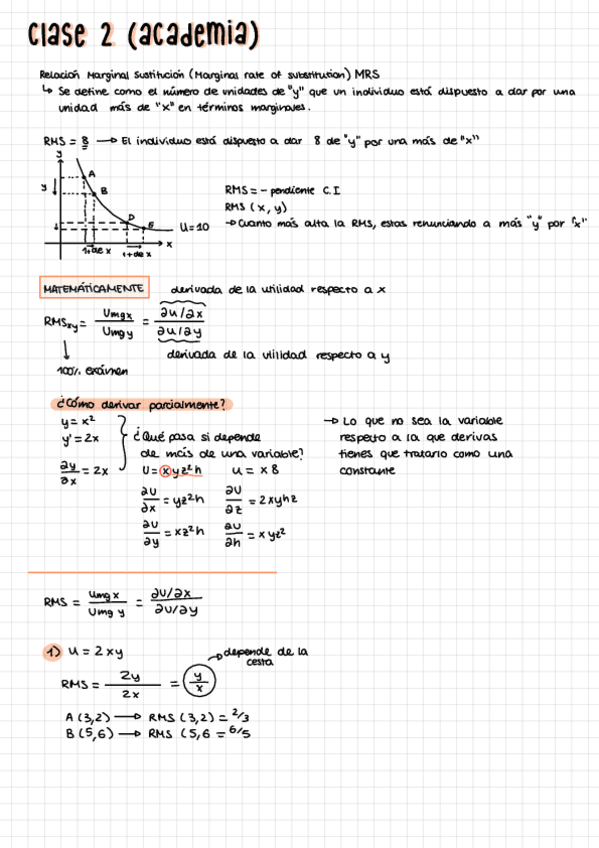 Clase 2 (academia)
Relación Marginal Sustitución (Marginal rate of substitution) MRS
↳ Se define como el número de unidades de "y" que un individuo está dispuesto a dar por una
unidad más de "x" en términos marginales.
RMS = 8 → El individuo está dispuesto a dar 8 de "y" por una más de "x"
y
A
y
B
D
E
U=10
x
1+de x
1+de x
RMS = - pendiente C.I.
RMS (x, y)
→ Cuanto más alta la RMS, estas renunciando a más "y" por "x"
MATEMÁTICAMENTE
derivada de la utilidad respecto a x
RMSxy = Umgx / Umgy = ∂u/∂x / ∂u/∂y
derivada de la utilidad respecto a y
100% exámen
¿Cómo derivar parcialmente?
y = x²
y' = 2x
∂y/∂x = 2x
¿Qué pasa si depende
de más de una variable?
U = xyz²h u = x8
∂U/∂x = yz²h ∂U/∂z = 2xyhz
∂U/∂y = xz²h ∂U/∂h = xyz²
→ Lo que no sea la variable
respecto a la que derivas
tienes que tratarlo como una
constante
RMS = Umgx / Umgy = ∂U/∂x / ∂U/∂y
1) U = 2xy
→ depende de la
cesta
RMS = 2y / 2x = y/x
A (3,2) → RMS (3,2) = 2/3
B (5,6) → RMS (5,6 = 6/5